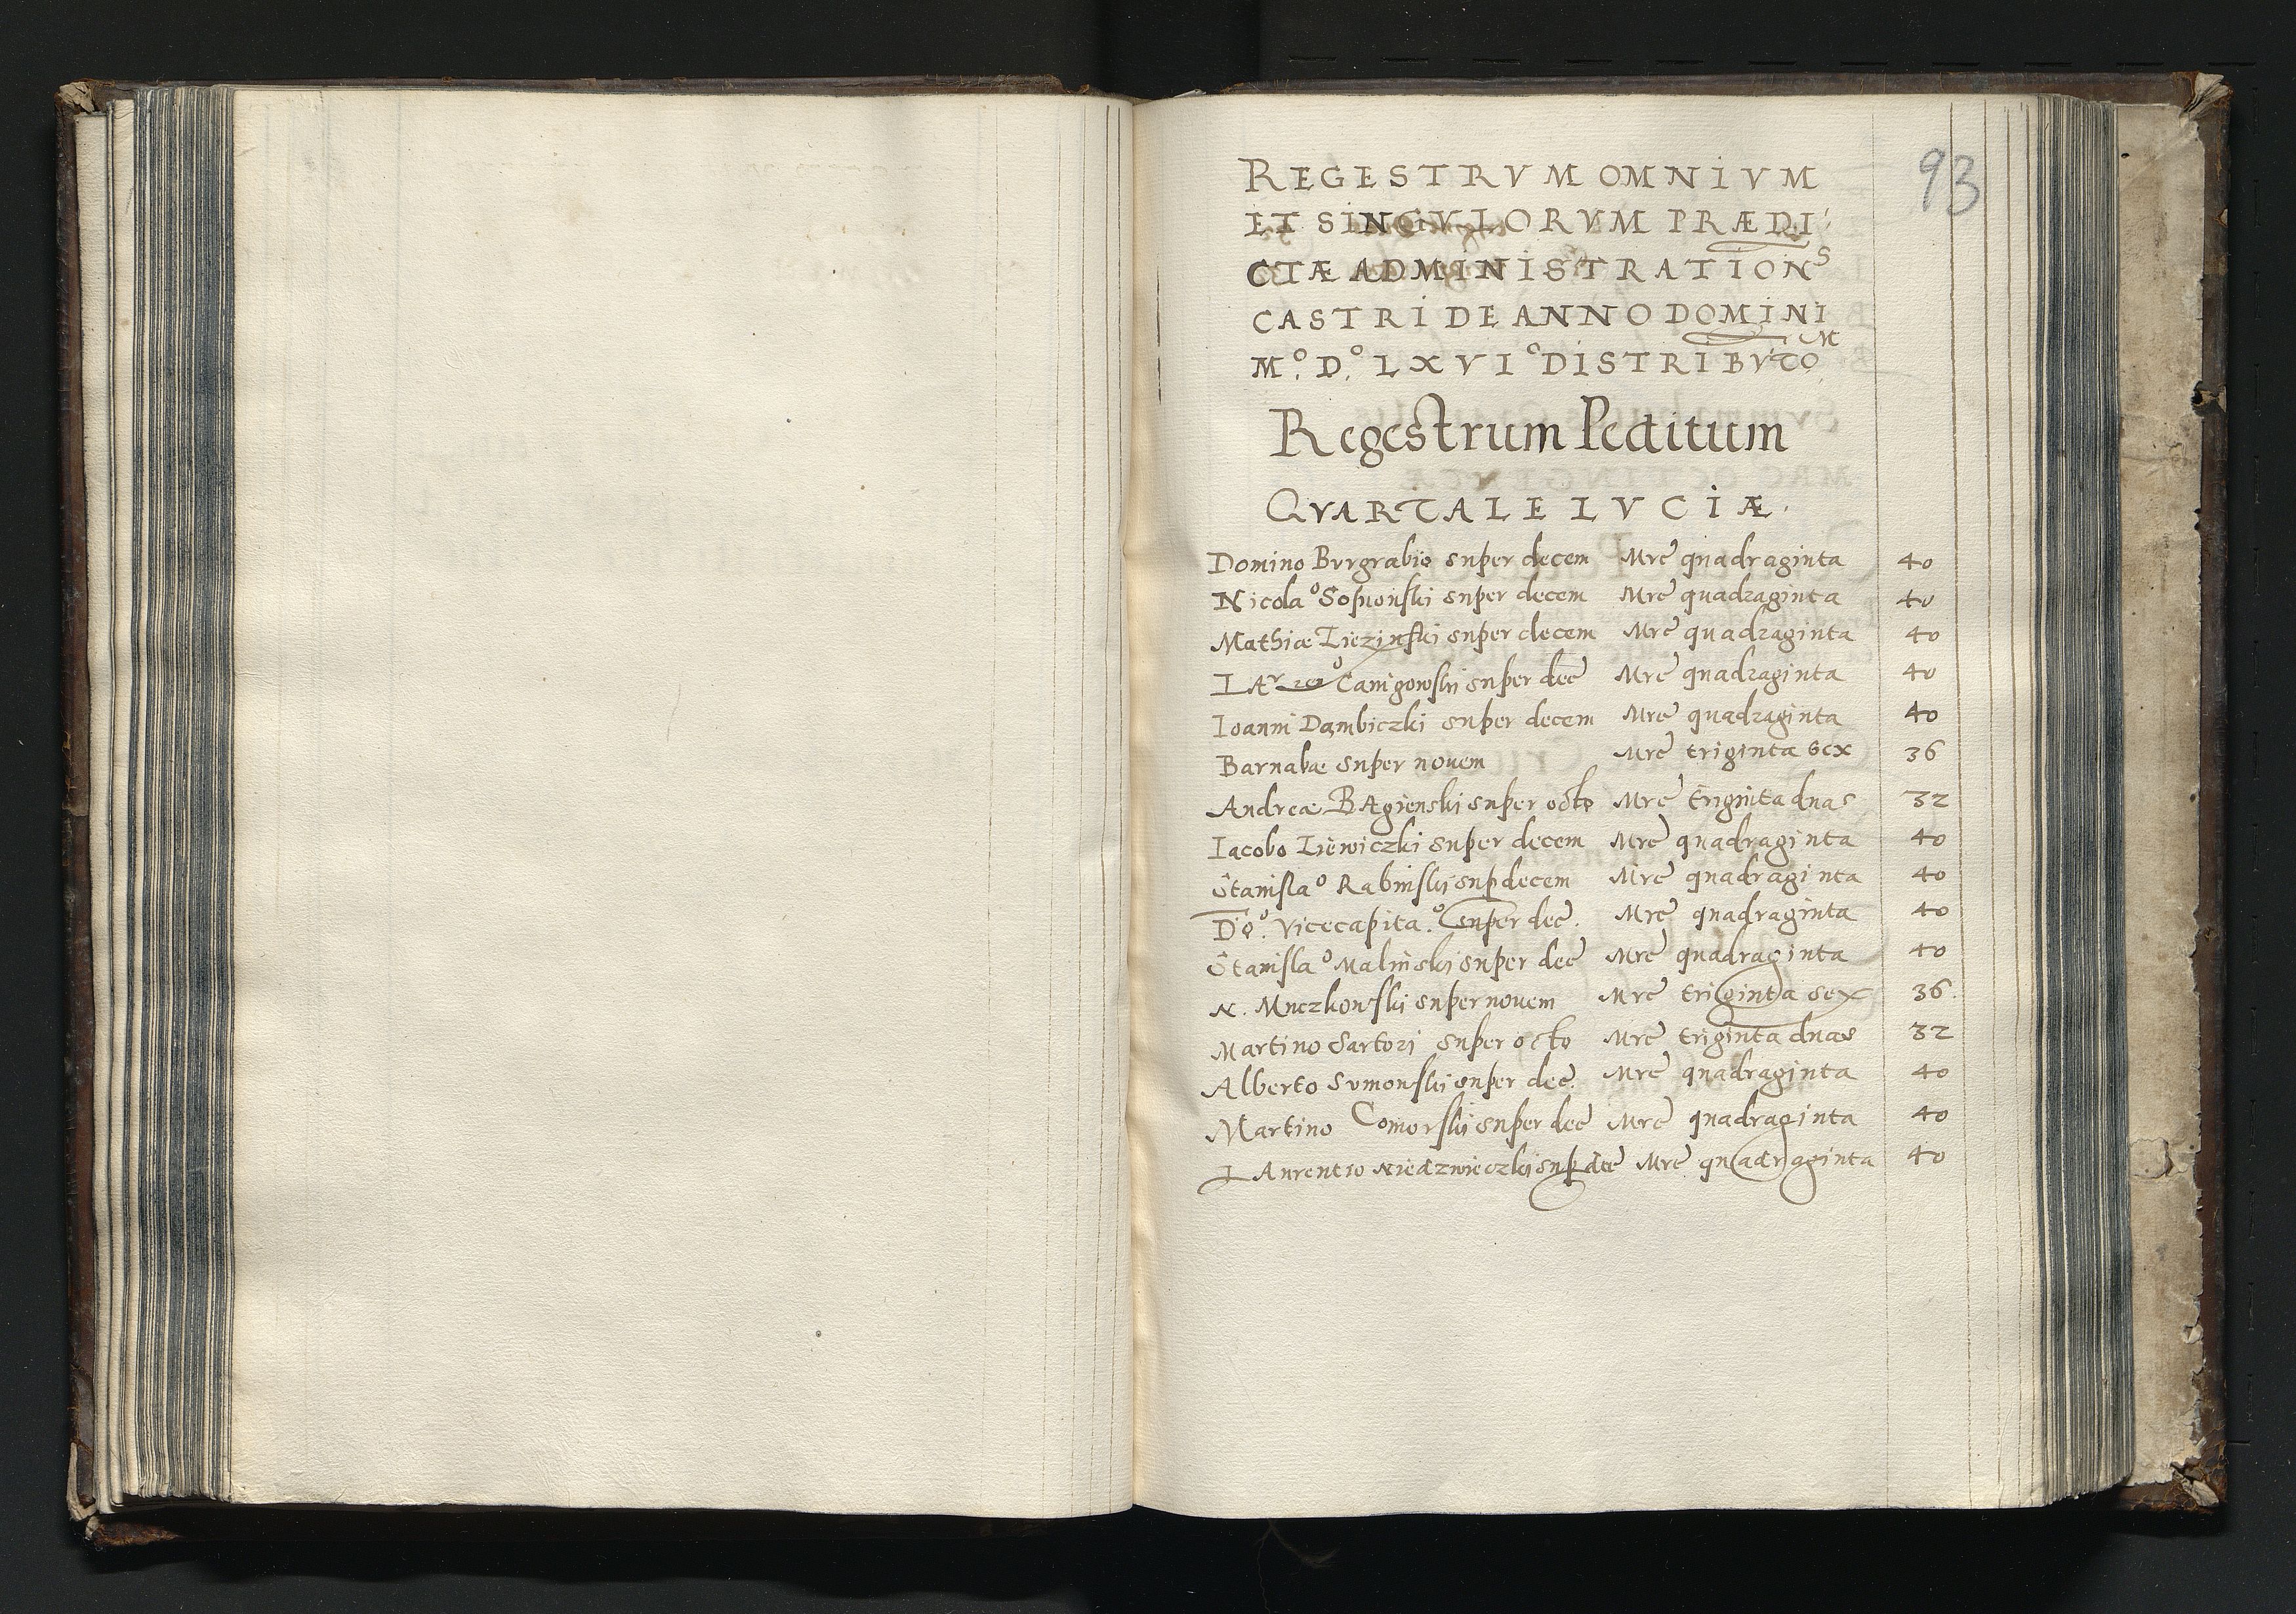 93
REGESTRVM OMNIVM
ET SINGVLORVM PRÆDI
CTÆ ADMINISTRATIONS
CASTRI DE ANNO DOMINI
M
M.º D.º LXVIº DISTRIBVTO
Regestrum Peditum
QVARTALE LVCIÆ.
Domino Burgrabio super decem Mrc quadraginta 40
Nicolaº super decem Mrc quadraginta 40
Mathiæ super decem Mrc quadraginta 40
Canigowski super dec Mrc quadraginta 40
Ioanni Dambiczki super decem Mrc quadraginta 40
Barnabæ super nouem Mrc triginta sex 36
Andreæ BAgienski super octo Mrc triginta duas 32
Iacobo super decem Mrc quadraginta 40
Stanislaº Rabinski sup decem Mrc quadraginta 40
Dº. Vicecapita.º super dec. Mrc quadraginta 40
Stanislaº Malinski super dec Mrc quadraginta 40
N. Muczkowski super nouem Mrc triginta sex 36.
Martino Sartori super octo Mrc triginta duas 32
Alberto Sumonski super dec. Mrc quadraginta 40
Martino Comorski super dec Mrc quadraginta 40
LAurentio Niedzwieczki sup dec Mrc quadraginta 40